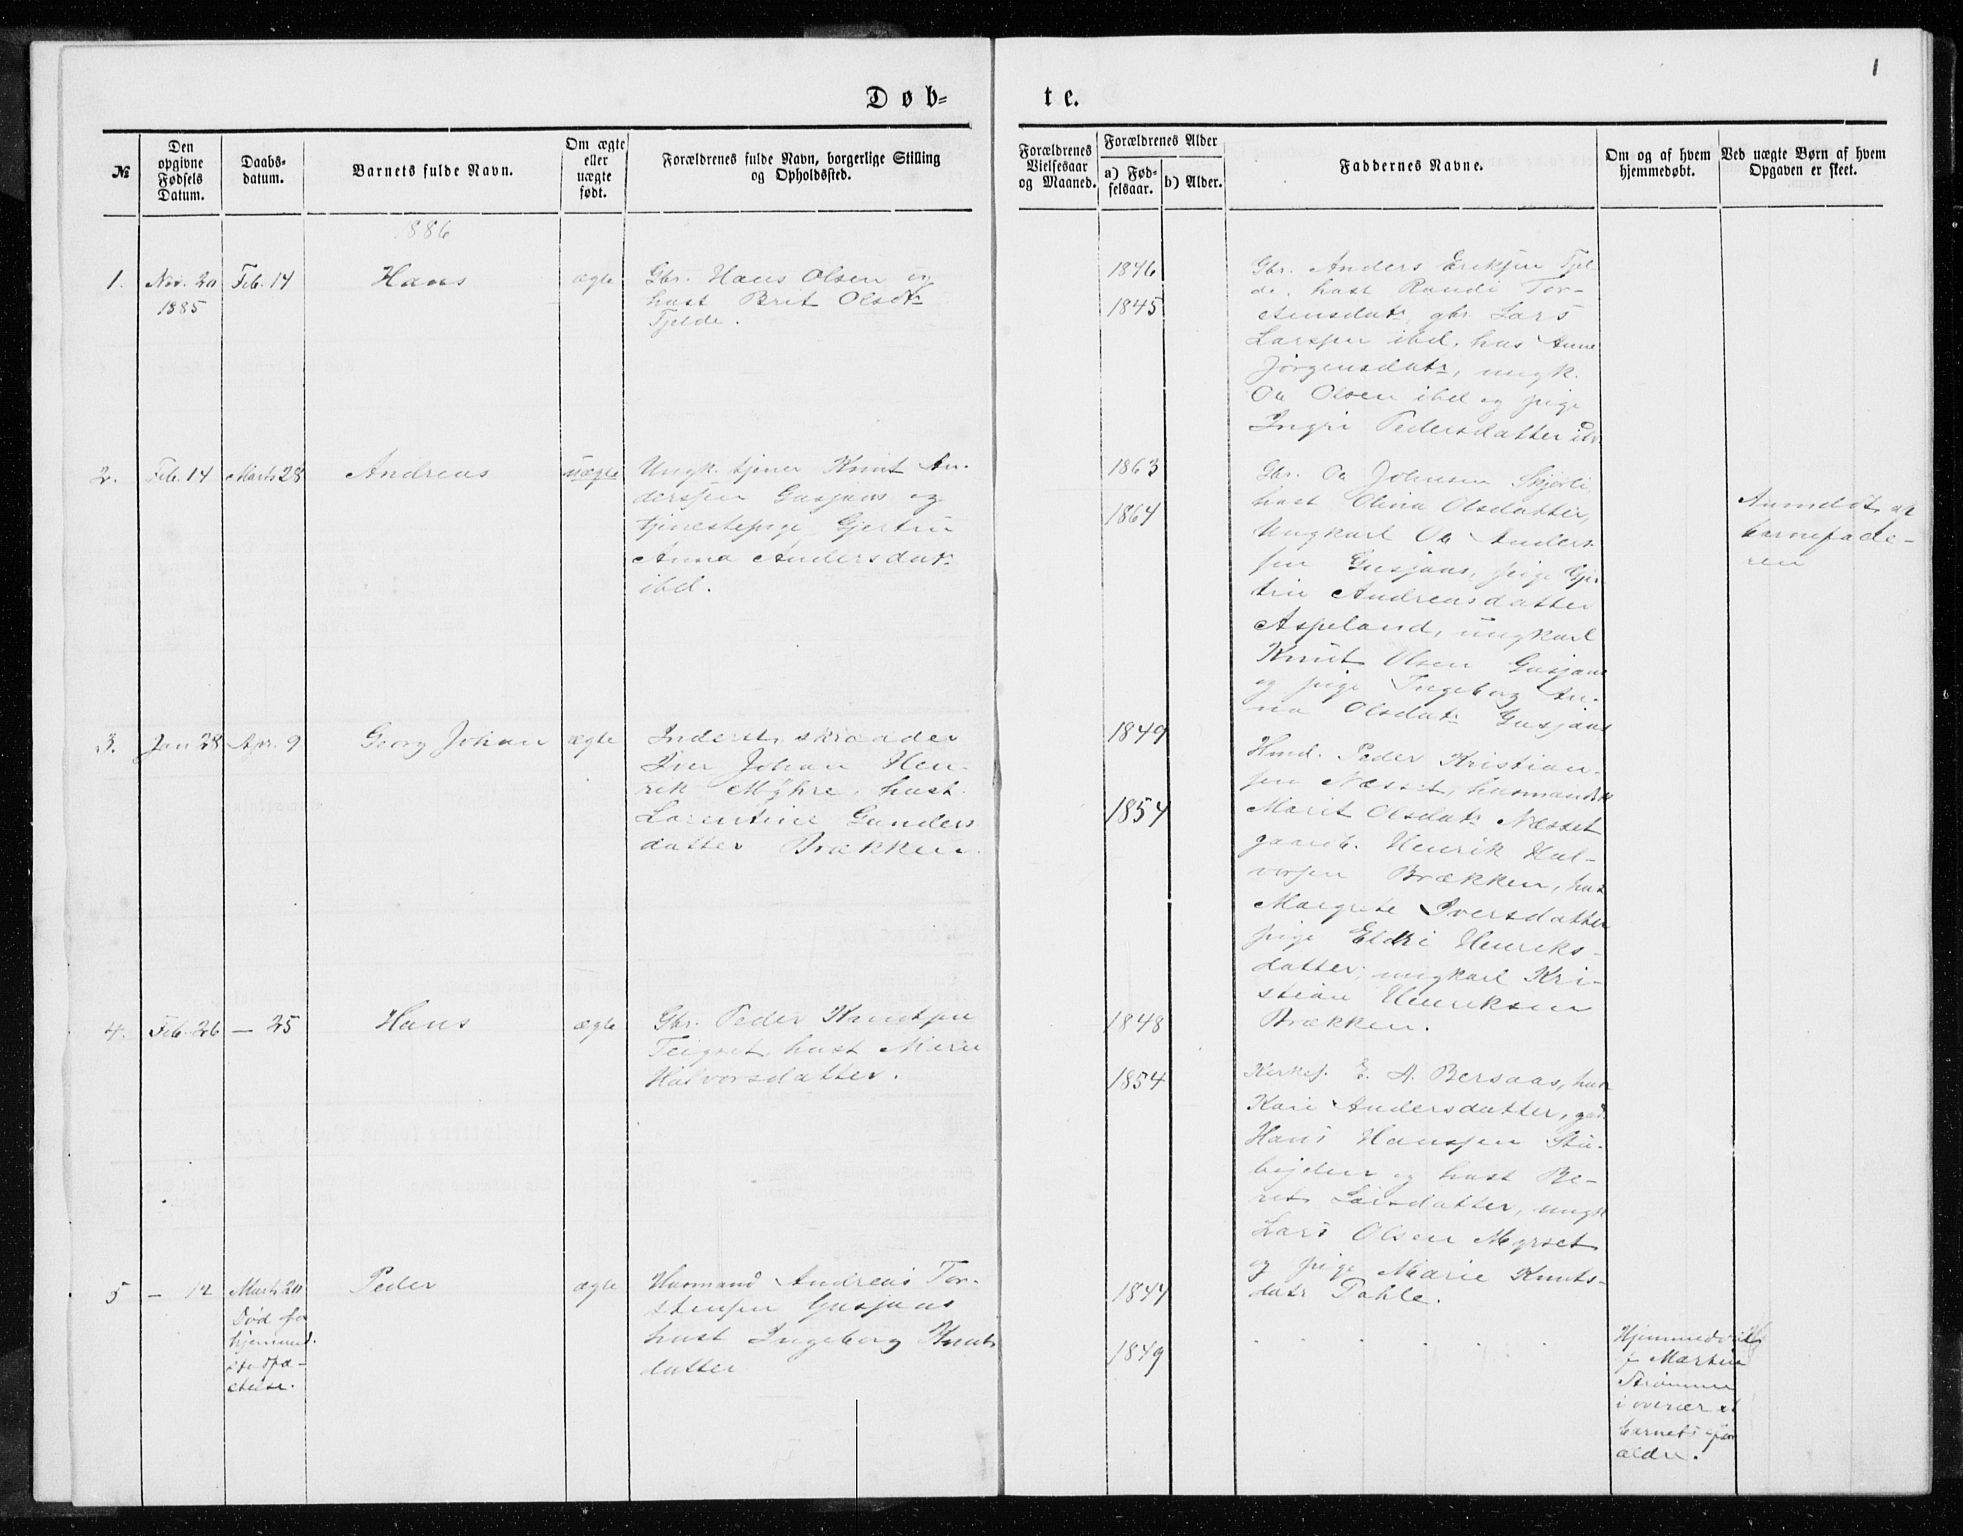 1
Døb-
te.
№
Den opgivne Fødsels Datum.
Daabs-datum.
Barnets fulde Navn.
Om ægte eller uægte født.
Forældrenes fulde Navn, borgerlige Stilling og Opholdssted.
Forældrenes Vielsesaar og Maaned.
Forældrenes Alder
a) Fød-selsaar.
b) Alder.
Faddernes Navne.
Om og af hvem hjemmedøbt.
Ved uægte Børn af hvem Opgaven er skeet.
1886
1.
Nov. 20
1885
Feb. 14
Hans
ægte
Gbr. Hans Olsen og
hust Brit Olsdtr
Tjelde.
1846
1845
Gbr. Anders Eriksen Tjel-
de, hust Randi Tor-
stensdatr, gbr. Lars
Larssen ibd, hus Anne
Jørgensdatr, ungk.
Ole Olsen ibd og pige
Ingri Pedersdatter ibd.
2.
Feb. 14
Marts 28
Andreas
uægte
Ungk. tjener Knut An-
derssen Gusjaas og
tjenestepige Gjertin
Anna Andersdatr
ibd.
1863
1864
Gbr. Ole Johnsen Skjørli,
hust Olina Olsdatter,
Ungkarl Ole Anders-
sen Gusjaas, pige Gjer-
trin Andreasdatter
Aspeland, ungkarl
Knut Olsen Gusjaas
og pige Ingeborg An-
na Olsdatr Gusjaas
Anmeldt af
barnefade-
ren
3.
Jan 28
Apr. 9
Georg Johan
ægte
Inderst, skrædder
Iver Johan Hen-
rik Myhre, hust.
Lorentine Gunders
datter Brækken.
1849
1854
Hmd. Peder Kristian-
sen Næsset, husmandsk
Marit Olsdatr Næsset
gaardb. Henrik Hal-
vorsen Brækken, hus
Margrete Iversdatter
pige Eldri Henriks-
datter, ungkarl Kri-
stian Henriksen
Brækken.
4.
Feb. 26
— 25
Hans
ægte
Gbr. Peder Knutsen
Teigset, hust Marie
Halvorsdatter.
1848
1854
Kirkes. E. A. Bersaas, hus
Kari Andersdatter, gbr.
Hans Hanssen Stu-
bøjden og hust Be-
ret Larsdatter, ungk
Lars Olsen Myrset
og pige Marie Knuts-
datr Dahle.
5
— 12
Marts 20
Død før
hjemmed.
stadfæ-
stelse.
Peder
ægte
Husmand Andreas Tor-
stensen Gusjaas
hust Ingeborg Knuts
datter
1844
1849
Hjemmedøbt
f Martin
Strømme
i overvær af
barnets for
ældre.